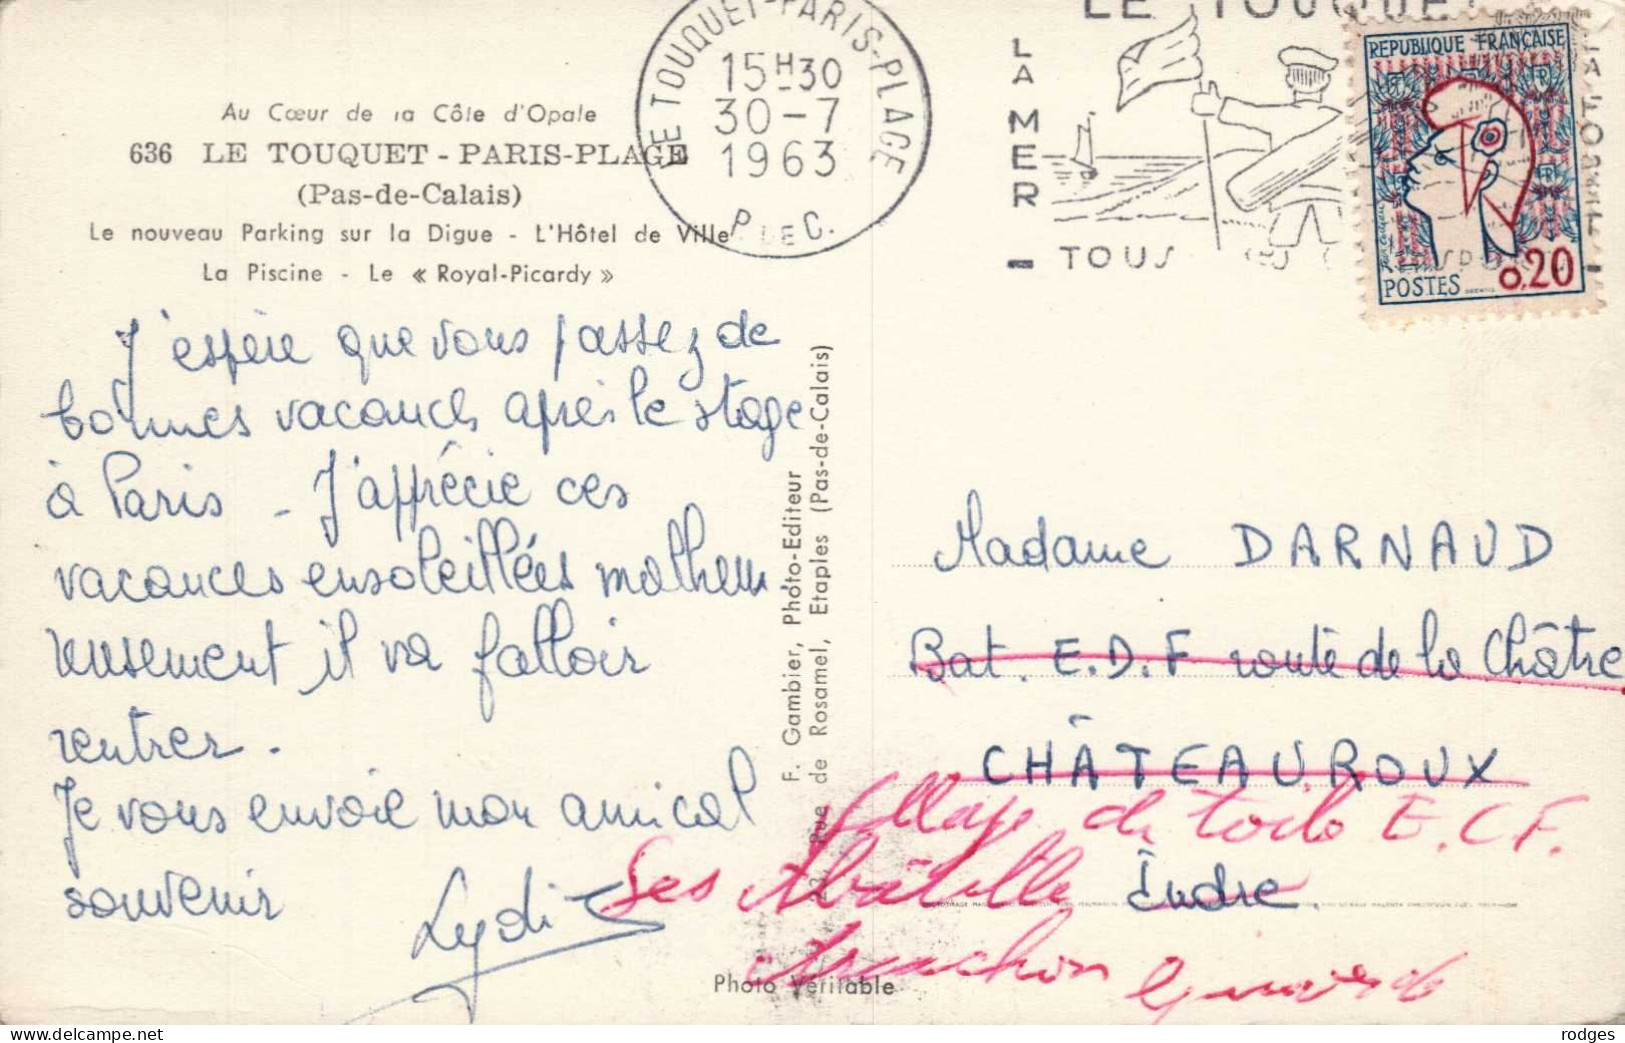 Au Cœur de la Côte d'Opale
636 LE TOUQUET - PARIS-PLAGE
(Pas-de-Calais)
Le nouveau Parking sur la Digue - L'Hôtel de Ville
La Piscine - Le « Royal-Picardy »
LE TOUQUET-PARIS-PLAGE
15H30
30-7
1963
P. DE C.
LE TOUQUET
LA MER
TOUS
REPUBLIQUE FRANÇAISE
POSTES
0,20
J'espère que vous passez de
bonnes vacances après le stage
à Paris - J'apprécie ces
vacances ensoleillées malheu
reusement il va falloir
rentrer.
Je vous envoie mon amical
souvenir
Lydie
F. Gambier, Photo-Editeur
Rue de Rosamel, Etaples (Pas-de-Calais)
Madame DARNAUD
Bat. E.D.F route de la Châtre
CHÂTEAUROUX
village de toile E.C.F.
Les Abatilles
Indre
Arcachon Gironde
Photo Véritable
rodges